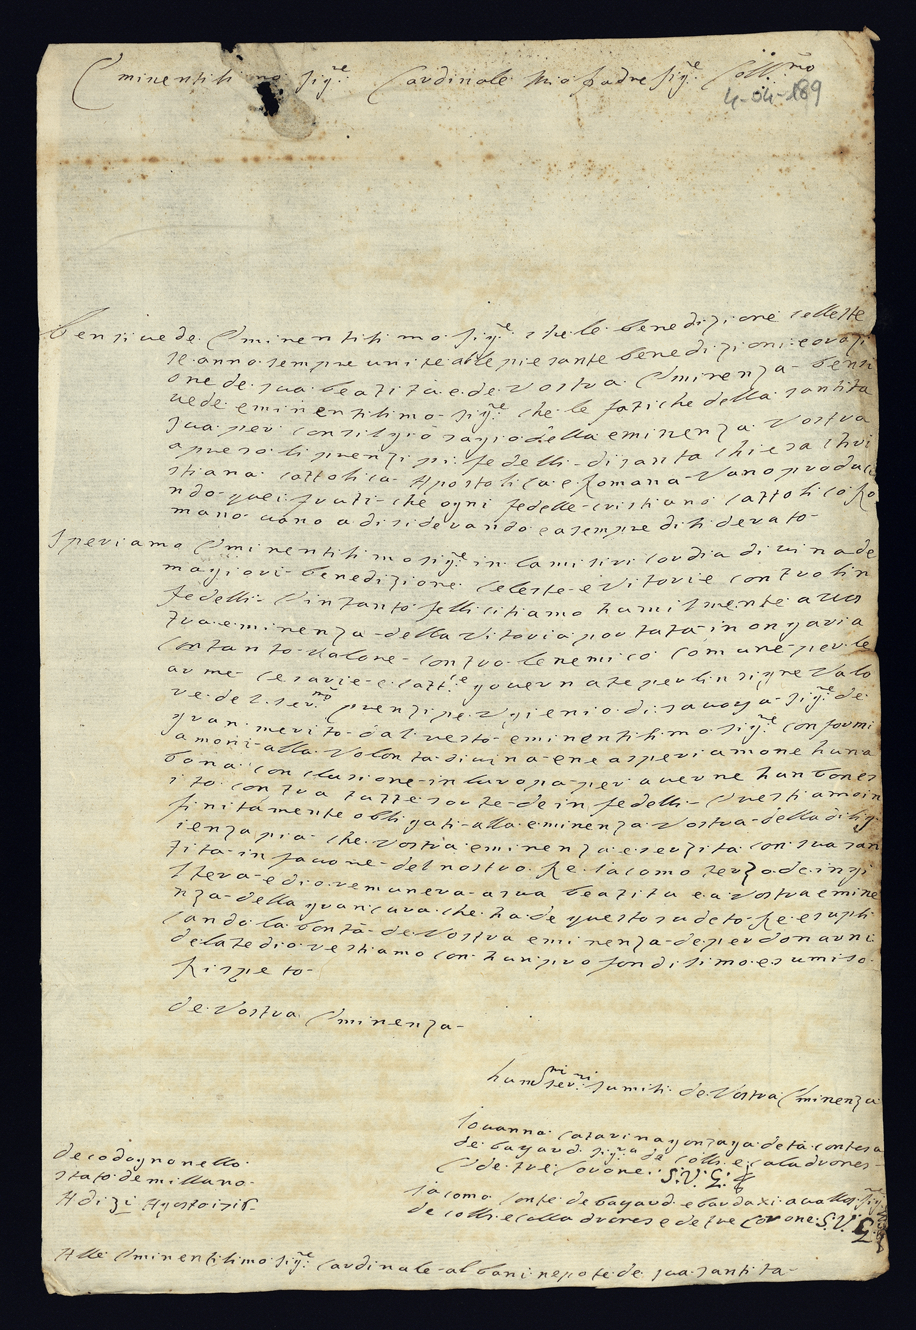 Eminentisimo sig.re Cardinale mio padre sig.re Coll.mo
4-04-189
ben si uede Eminentisimo sig.re che le benedizione celleste
se anno sempre unite alle pie sante benedizioni e orazi
one de sua beazità e de Vostra Eminenza- ben si
uede eminentisimo sig.re che le fatiche della santità
sua per consilgio e della eminenza Vostra
apreso li prenzipi fedelli di santa chiesa chri
stiana cattolica Apostolica e Romana Vano produce
ndo quei fruti che ogni fedelle cristiano cattolico Ro
mano uano a disiderando e a sempre disiderato-
Speriamo Eminentisimo sig.re in la misiricordia diuina de
magiori benedizione Celeste e Vitorie contro li in
fedelli- E intanto fellicitiamo humilmente a uos
tra eminenza della Vitoria portata in ongaria
con tanto Valore contro le nemico comune per le
arme Cesarie e catt.e guuernate per l insigne Valo
re del ser.mo prenzipe Ugienio di sauoya sig.re de
gran merito dal resto eminentisimo sig.re conformi
amoni alla Volontà diuina e ne asperiamone huna
bona conclusione in Europa per auerne han bon es
ito contra tutte sorte de in fedelli- E restiamo in
finitamente obligati alla eminenza Vostra della dilig
ienza pia che Vostra eminenza eserzita con sua san
tita in fauore del nostro Re iacomo terzo de ingi
ltera e dio remunera a sua beazita e a Vostra emine
nza della gran cura che ha de questo sudeto Re e supli
cando la bontà de Vostra eminenza de perdonarni
de la tedio restiamo con han profondisimo e sumiso
Rispeto-
de Vostra Eminenza-
hum.mi ser.ri sumisi de Vostra Eminenza
Iouanna Catarina gonzaga detà contesa
de bayard sig.a de colli e caladrones-
E de tre Corone. S.V.E.
de codognonello
stato de millano
A di 31 Agosto 1716-
iacomo Conte de bayard e bardaxi aualloi sig.re
de colli e calladrones e de tre Corone S.V.E.
Alle Eminentisimo sig.re Cardinale albani nepote de sua santità-